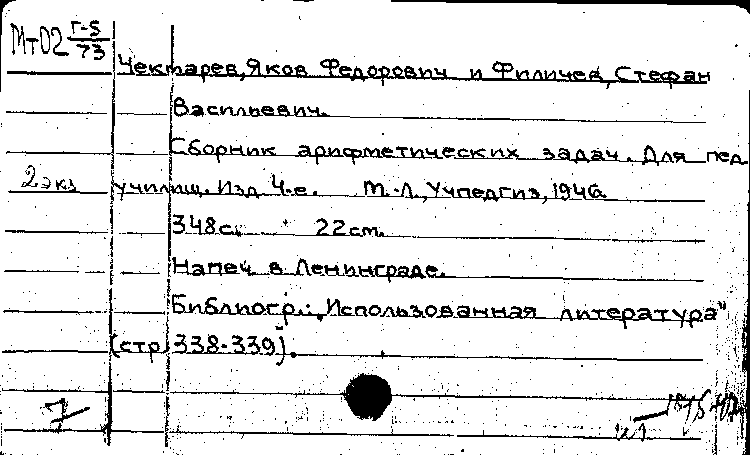 Мт02 Г-5/73
Чектарев, Яков Федорович и Филичев, Стефан
Васильевич.
Сборник арифметических задач. Для пед.
2 экз училищ. Изд. 4-е. М.-Л., Учпедгиз, 1946.
348с. 22см.
Напеч. в Ленинграде.
Библиогр.: "Использованная литература"
(стр. 338-339).
7